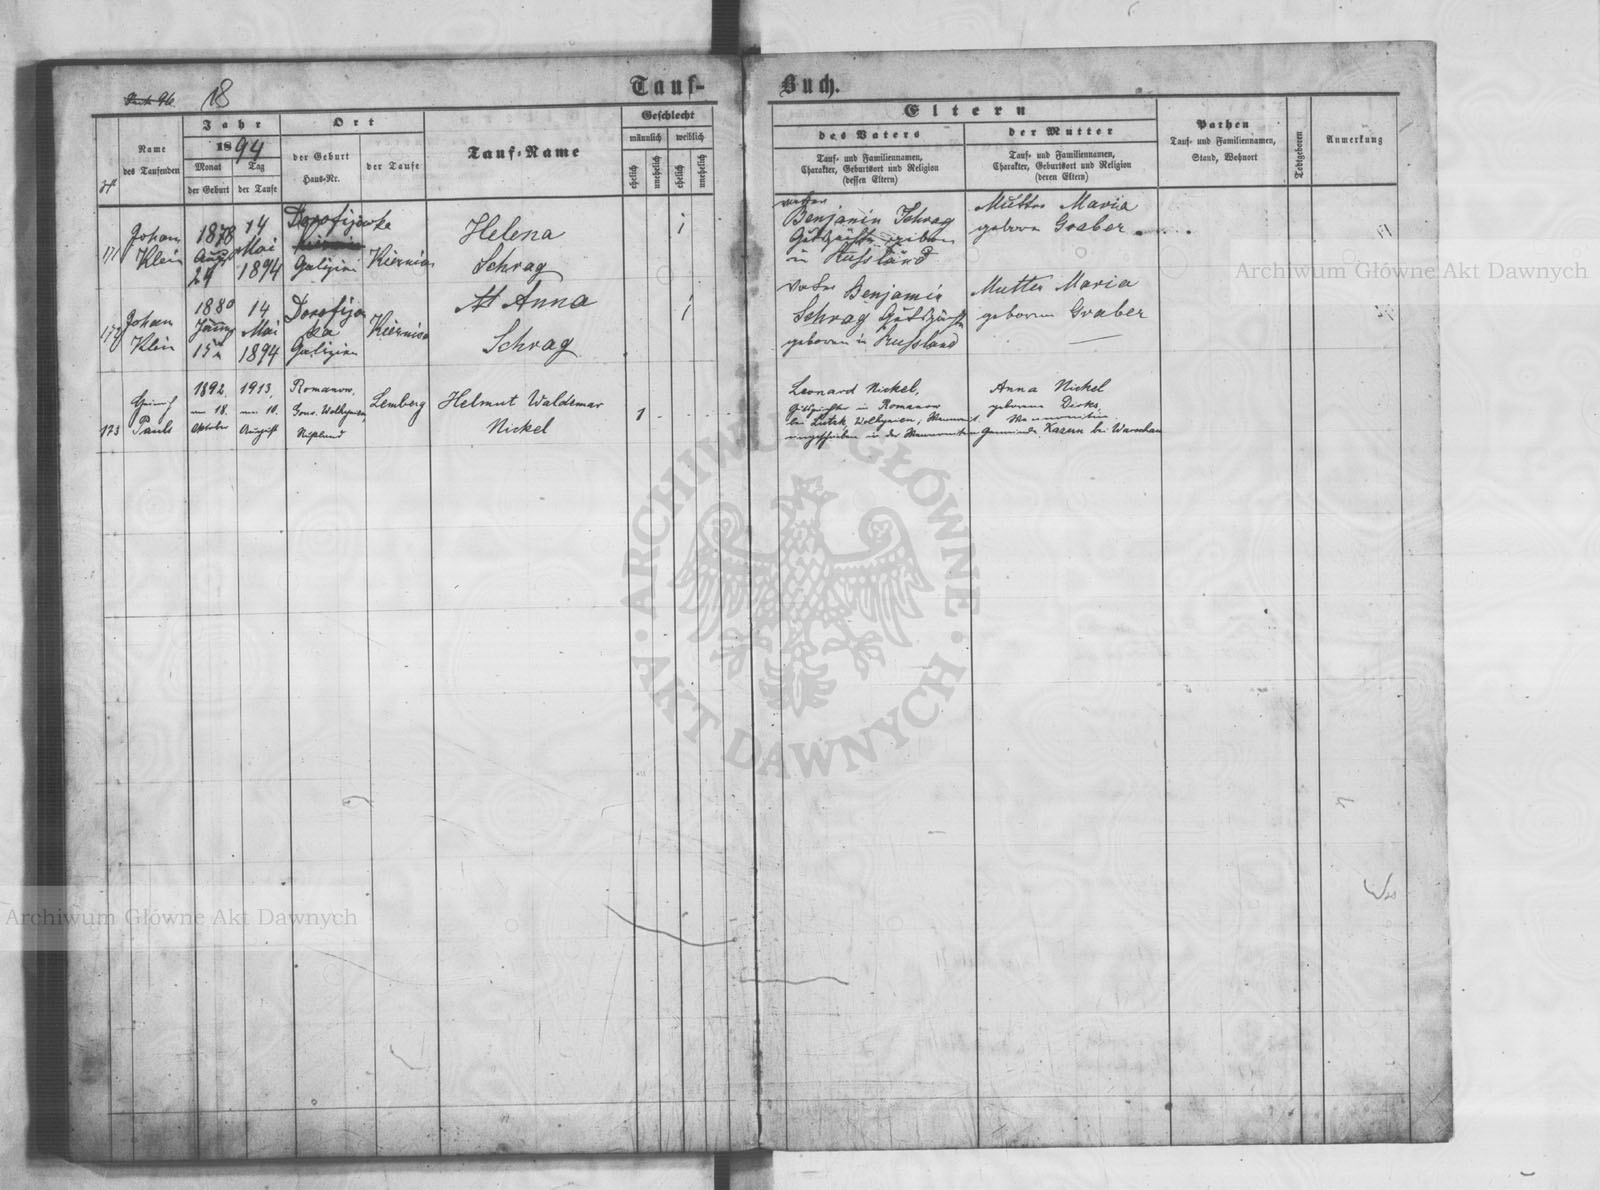 18
Tauf-
Buch.
Name
des Taufenden
Jahr
1894
Monat
Tag
der Geburt
der Taufe
Ort
der Geburt
Haus-Nr.
der Taufe
Tauf-Name
Geschlecht
männlich
weiblich
ehelich
unehelich
ehelich
unehelich
Eltern
des Vaters
Tauf- und Familiennamen,
Charakter, Geburtsort und Religion
(dessen Eltern)
der Mutter
Tauf- und Familiennamen,
Charakter, Geburtsort und Religion
(deren Eltern)
Pathen
Tauf- und Familiennamen,
Stand, Wohnort
Todtgeboren
Anmerkung
171
Johan
Klein
1878
Aug
24
14
Mai
1894
Dorofijowka
Galizien
Kiernica
Helena
Schrag
1
Vatter
Benjamin Schrag
Gutspächter geboren
in Russland
Mutter Maria
geboren Graber
172
Johan
Klein
1880
15
14
Mai
1894
Dorofijow
ka
Galizien
Kiernica
Anna
Schrag
1
Vater Benjamin
Schrag Gutspächter
geboren in Russland
Mutter Maria
geboren Graber
173
Heinrich
Pauls
1892
am 18.
Oktober
1913.
am 10.
August
Romanow,
Gouv. Wolhynien,
Rußland
Lemberg
Helmut Waldemar
Nickel
1
Leonard Nickel,
Gutspächter in Romanow
bei Lutzk, Wolhynien, Mennonit.
eingeschrieben in der Mennoniten Gemeinde Kazun bei Warschau
Anna Nickel
geborene Dirks,
Mennonitin
Archiwum Główne Akt Dawnych
ARCHIWUM GŁÓWNE
AKT DAWNYCH
Archiwum Główne Akt Dawnych